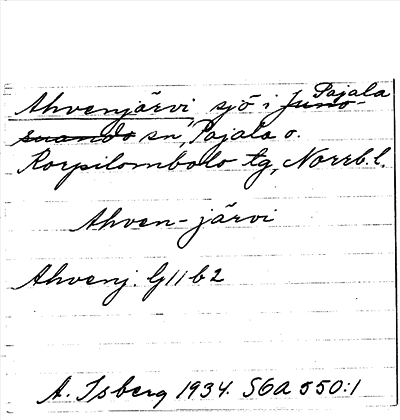 Ahvenjärvi, sjö i Juno- Pajala
suando sn, Pajala o.
Korpilombolo tg, Norrb. l.
Ahven-järvi
Ahvenj. G11b2
A. Isberg 1934. SGA 550:1